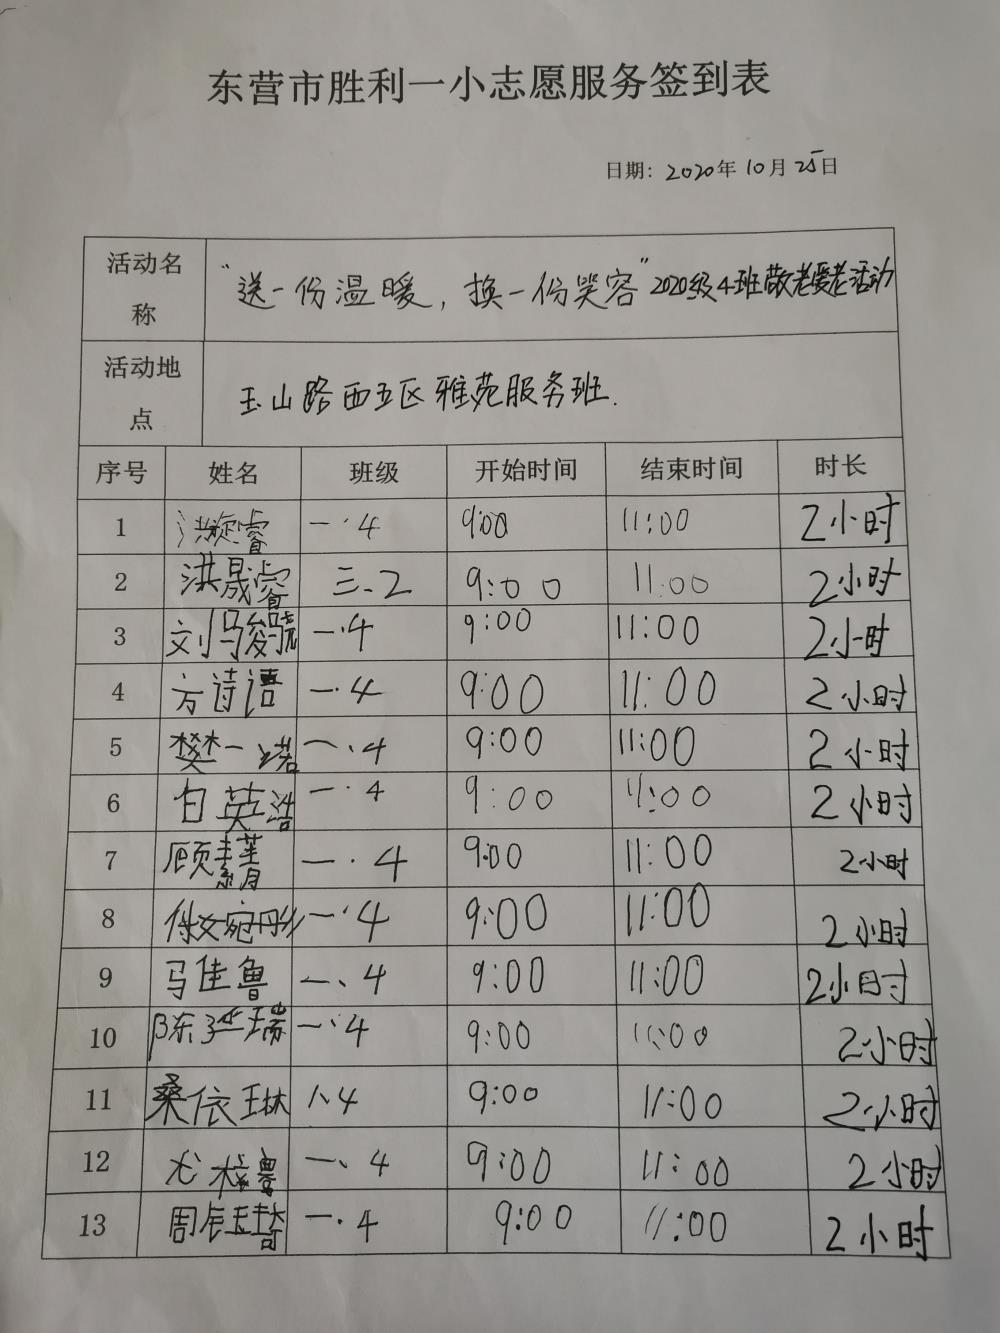 东营市胜利一小志愿服务签到表
日期: 2020年10月25日
活动名称 "送一份温暖，换一份笑容"2020级4班敬老爱老活动
活动地点 玉山路西五区雅苑服务班.
序号 姓名 班级 开始时间 结束时间 时长
1 洪璇睿 一·4 9:00 11:00 2小时
2 洪晟睿 三、2 9:00 11:00 2小时
3 刘马骏骁 一·4 9:00 11:00 2小时
4 方诗语 一·4 9:00 11:00 2小时
5 樊一诺 一、4 9:00 11:00 2小时
6 白英浩 一·4 9:00 11:00 2小时
7 顾 一·4 9:00 11:00 2小时
8 一·4 9:00 11:00 2小时
9 马佳鲁 一、4 9:00 11:00 2小时
10 陈 瑞 一、4 9:00 11:00 2小时
11 桑依琳 一、4 9:00 11:00 2小时
12 一、4 9:00 11:00 2小时
13 周辰 一·4 9:00 11:00 2小时